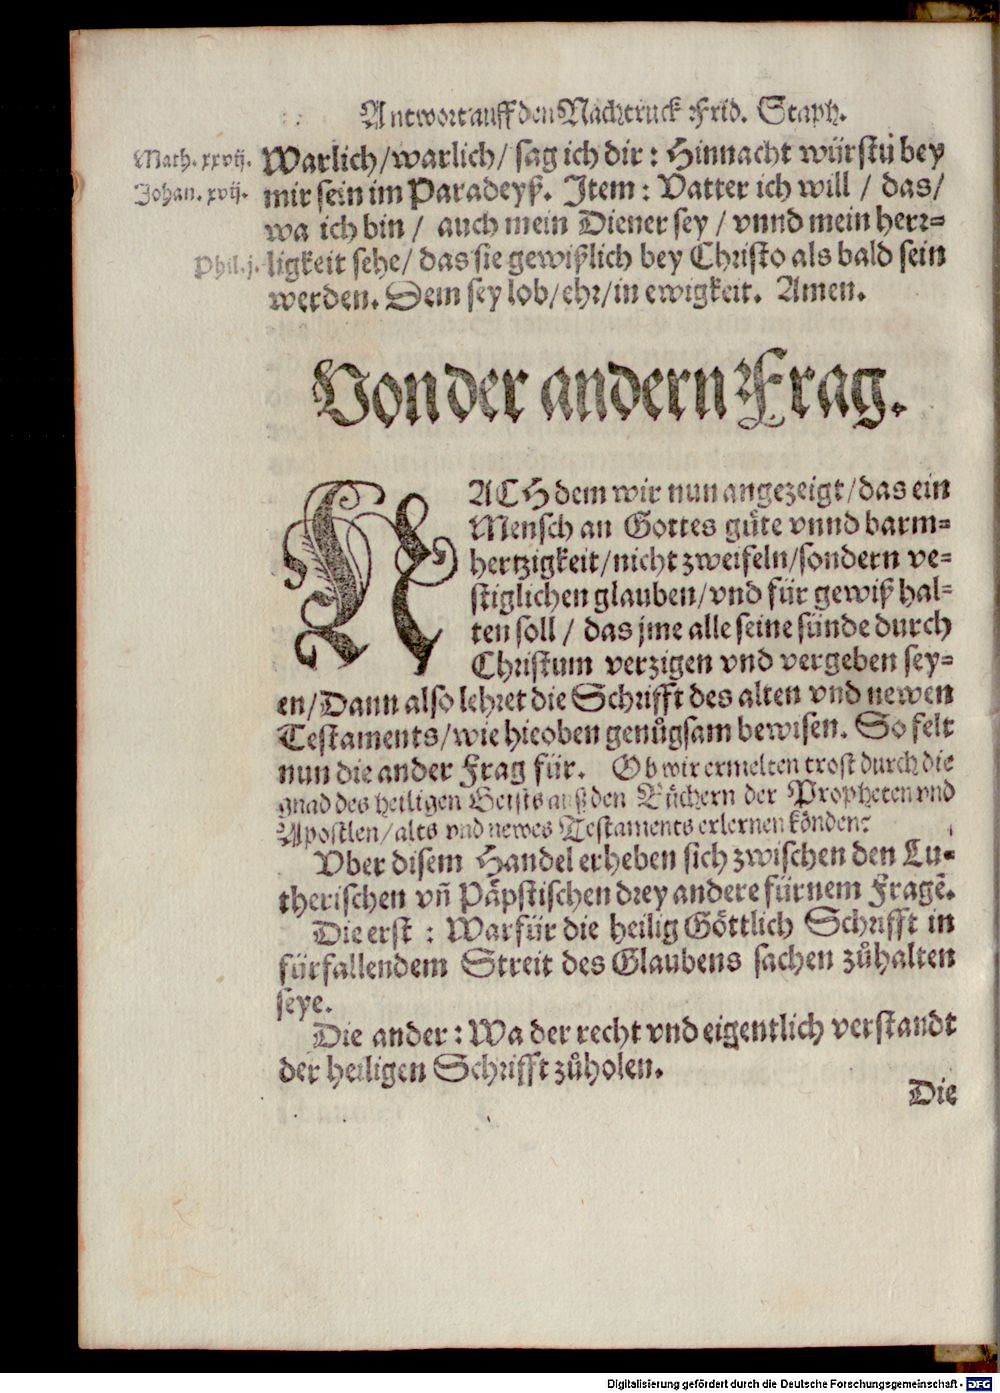 Antwort auff den Nachtruck Frid. Staph.
Math. xxvij.
Johan. xvij.
Phil. j.
Warlich/warlich/ sag ich dir: Hinnacht würstu bey
mir sein im Paradeyß. Item: Vatter ich will / das/
wa ich bin / auch mein Diener sey / vnnd mein herr-
ligkeit sehe/ das sie gewißlich bey Christo als bald sein
werden. Dem sey lob/ehr/in ewigkeit. Amen.
Von der andern Frag.
NACH dem wir nun angezeigt/das ein
Mensch an Gottes guͤte vnnd barm-
hertzigkeit/nicht zweifeln/sondern ve-
stiglichen glauben/vnd für gewiß hal-
ten soll / das jme alle seine sünde durch
Christum verzigen vnd vergeben sey-
en/Dann also lehret die Schrifft des alten vnd newen
Testaments/wie hieoben genůgsam bewisen. So felt
nun die ander Frag für. Ob wir ermelten trost durch die
gnad des heiligen Geists auß den Buͤchern der Propheten vnd
Apostlen/alts vnd newes Testaments erlernen koͤnden:
Vber disem Handel erheben sich zwischen den Lu-
therischen vñ Paͤpstischen drey andere fürnem Fragẽ.
Die erst : Warfür die heilig Goͤttlich Schrifft in
fürfallendem Streit des Glaubens sachen zůhalten
seye.
Die ander: Wa der recht vnd eigentlich verstandt
der heiligen Schrifft zůholen.
Die
Digitalisierung gefördert durch die Deutsche Forschungsgemeinschaft - DFG